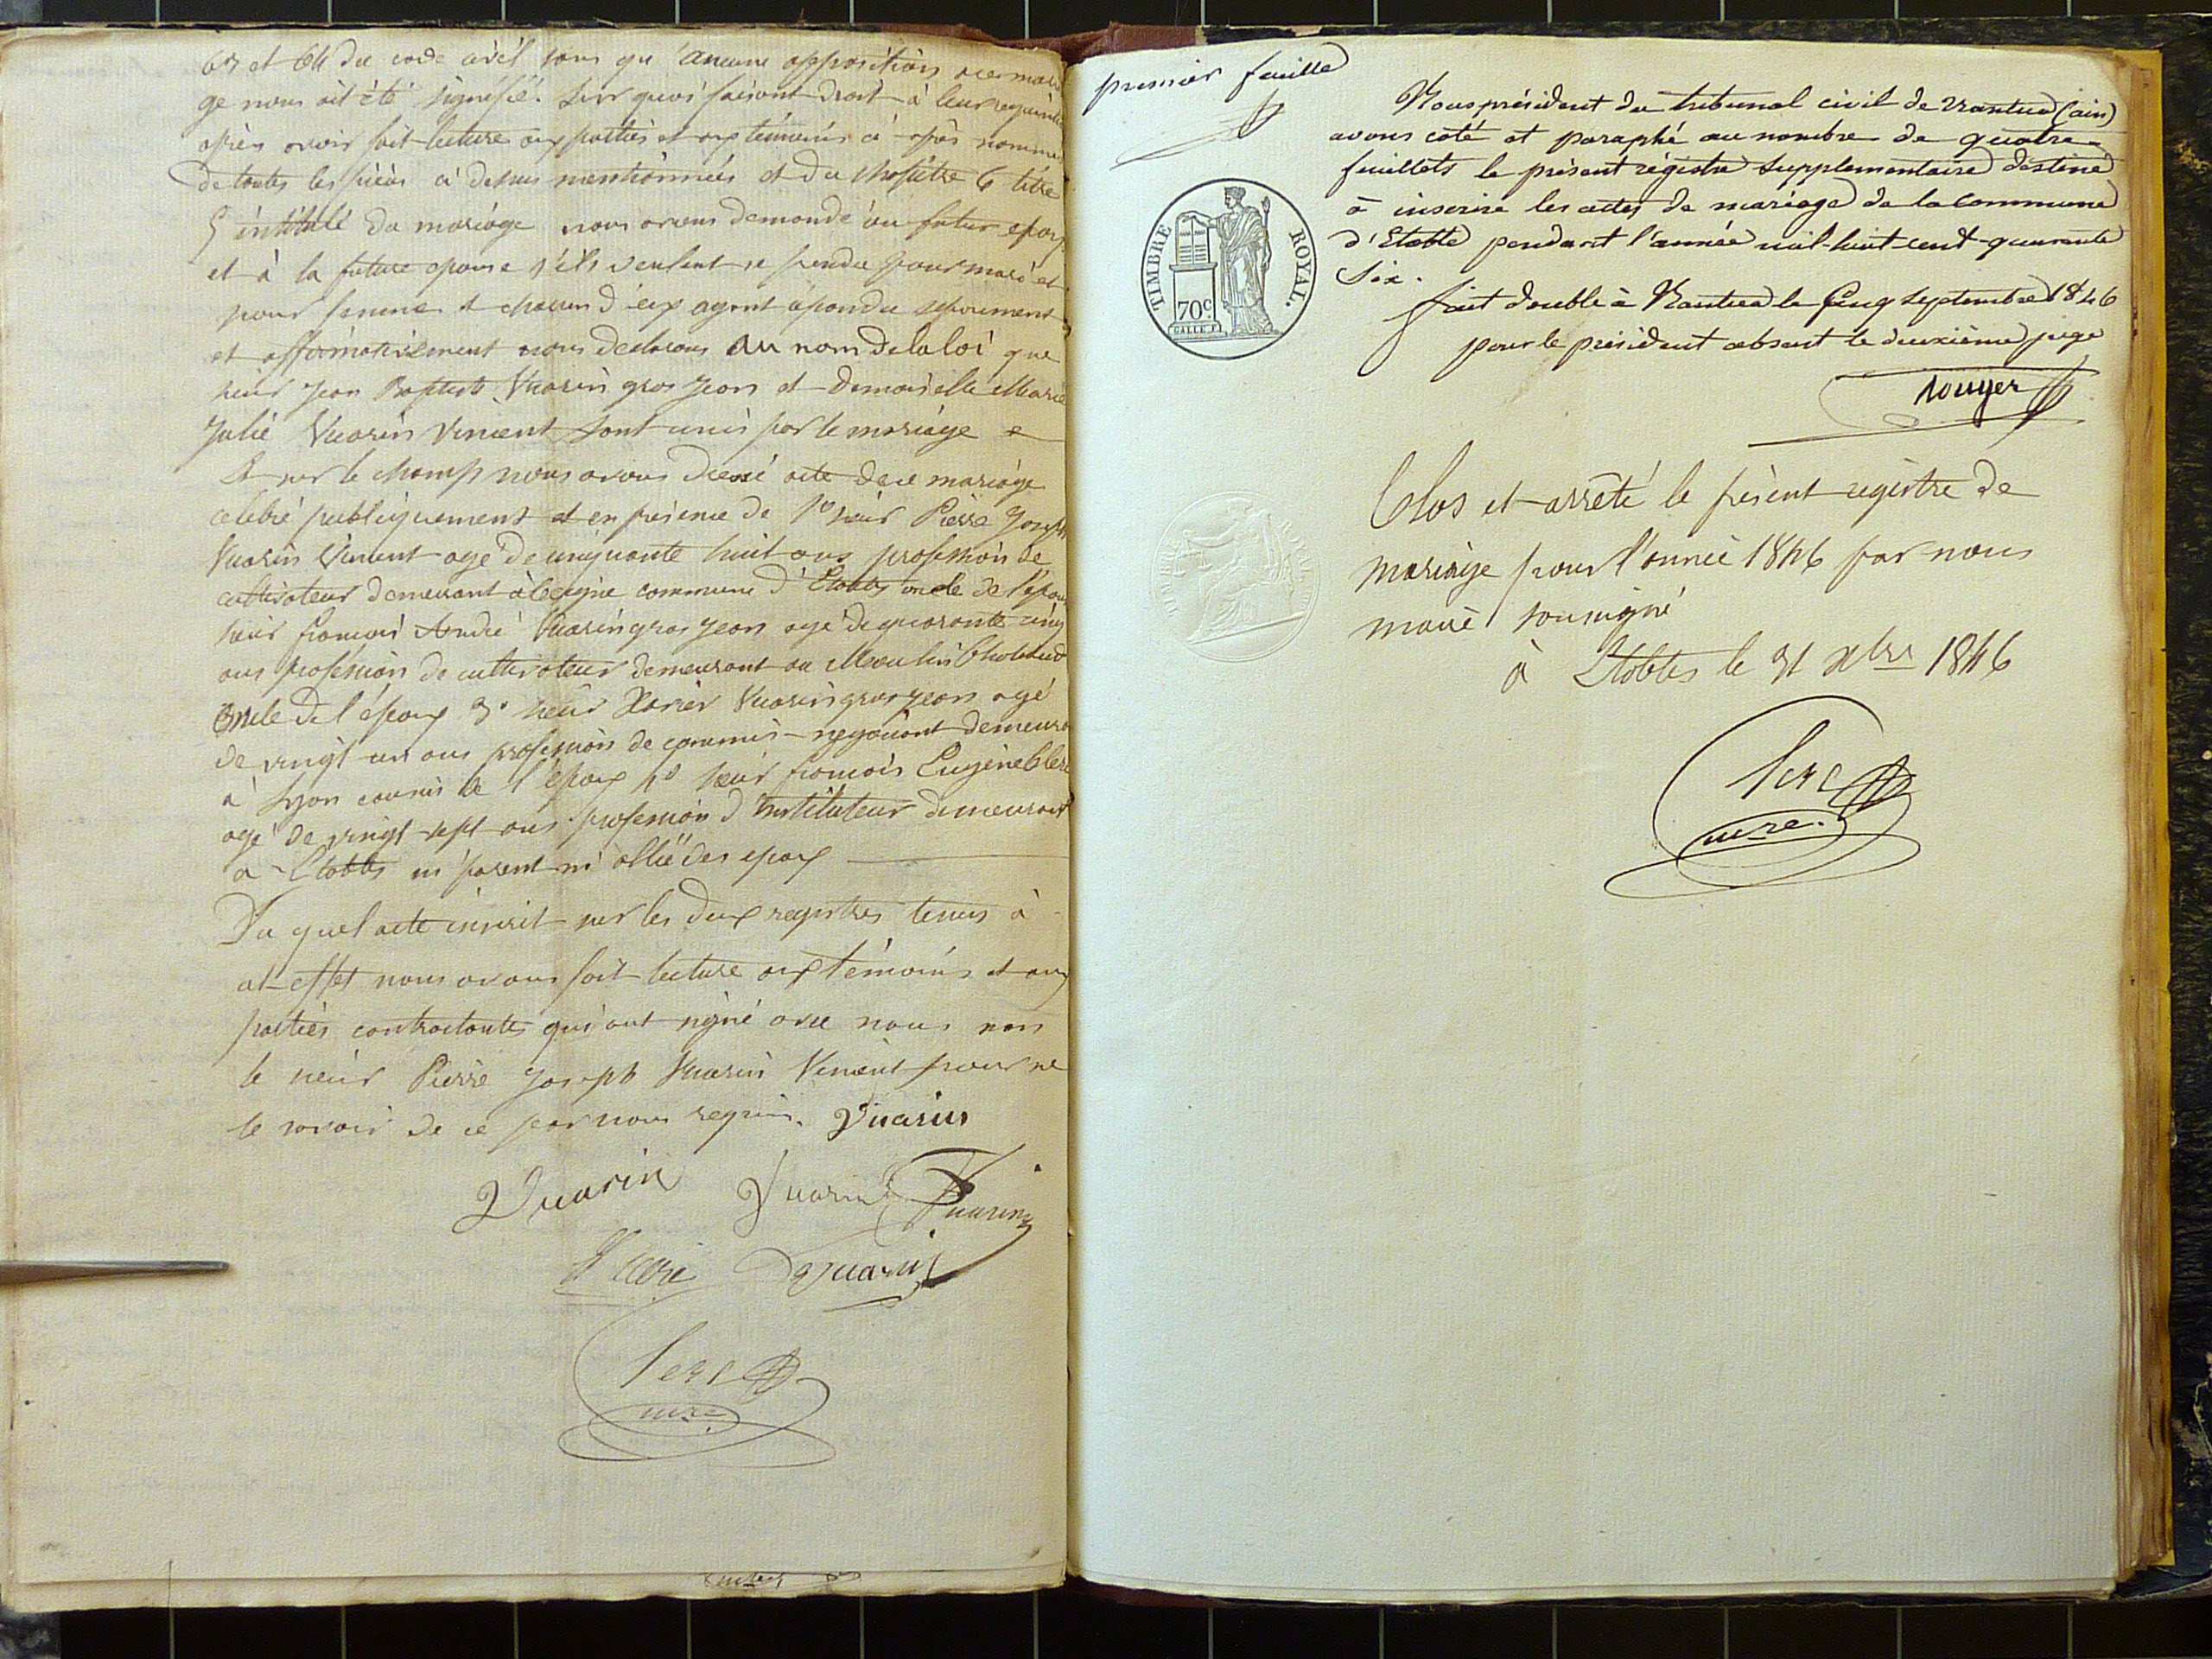 63 et 64 du code civil sans qu'aucune opposition a ce maria
ge nous ait été signifié. Sur quoi faisant droit à leur requisition
après avoir fait lecture aux parties et aux témoins ci après nommés
de toutes les pièces ci dessus mentionnées et du chapitre 6 titre
5 intitulé du mariage nous avons demandé au futur epoux
et à la future epouse s'ils veulent se prendre pour mari et
pour femme et chacun d'eux ayant répondu séparement
et affirmativement nous declarons au nom de la loi que
sieur Jean Baptiste Vuarin gros Jean et demoiselle Marie
Julie Vuarin Vincent sont unis par le mariage
Et sur le champ nous avons dressé acte de ce mariage
célébré publiquement et en présence de 1º sieur Pierre Joseph
Vuarin Vincent agé de cinquante huit ans profession de
cultivateur demeurant à commune d'Etables oncle de l'epoux
sieur françois André Vuarin gros Jean agé de quarante cinq
ans profession de cultivateur demeurant au Moulin
Oncle de l'époux 3º sieur Xavier Vuarin gros Jean agé
de vingt un ans profession de commis-negociant demeurant
à Lyon cousin de l'époux 4º sieur françois Eugène Clerc
agé de vingt sept ans profession d'instituteur demeurant
à Etables ni parent ni allié des epoux
Du quel acte inscrit sur les deux registres tenus à
cet effet nous avons fait lecture aux témoins et aux
parties contractantes qui ont signé avec nous non
le sieur Pierre Joseph Vuarin Vincent pour ne
le savoir de ce par nous requis. Vuarin
Vuarin Vuarin Vuarin
Vuarin
Clerc
maire
premier feuille
Nous président du tribunal civil de Nantua (ain)
avons coté et paraphé au nombre de quatre
feuillets le présent régistre supplementaire destiné
à inscrire les actes de mariage de la commune
d'Etable pendant l'année mil-huit-cent-quarante
Six.
fait double à Nantua le Cinq septembre 1846
pour le président absent le deuxième juge
Rouyer
TIMBRE ROYAL.
70c
Clos et arrêté le présent registre de
mariage pour l'année 1846 par nous
maire soussigné
à Etables le 31 Xbre 1846
Clerc
maire.